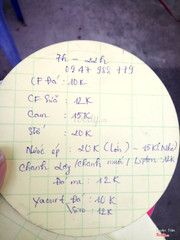 7h - 22h
CF Đá : 10K
CF Sữa : 12K
Cam : 15K
20K
Nước ép : 20K (Lớn) - 15K (Nhỏ)
Chanh dây / chanh muối / Lipton : 12K
Đá me : 12K
Yaourt Đá : 10K
Sữa : 12K